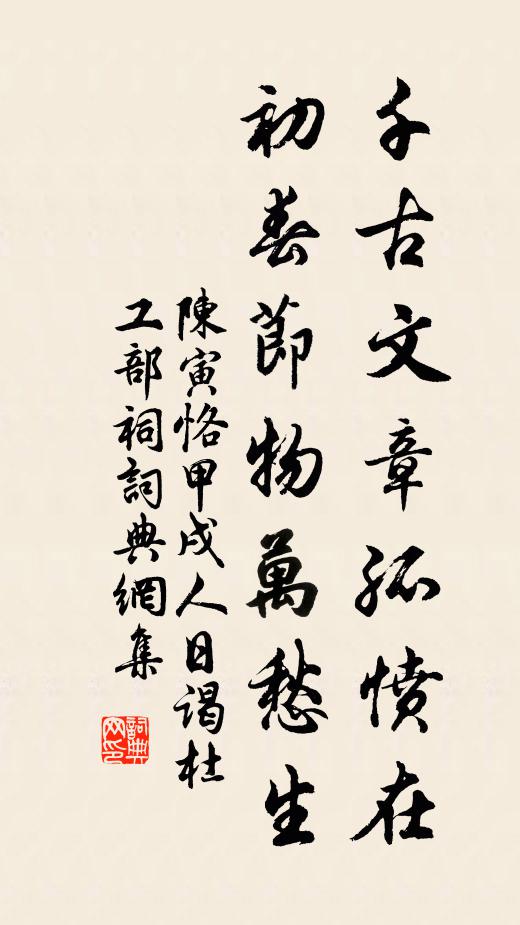 千古文章孤憤在
初春節物萬愁生
陳寅恪甲戌人日謁杜
工部祠詞典網集
詞典
网印